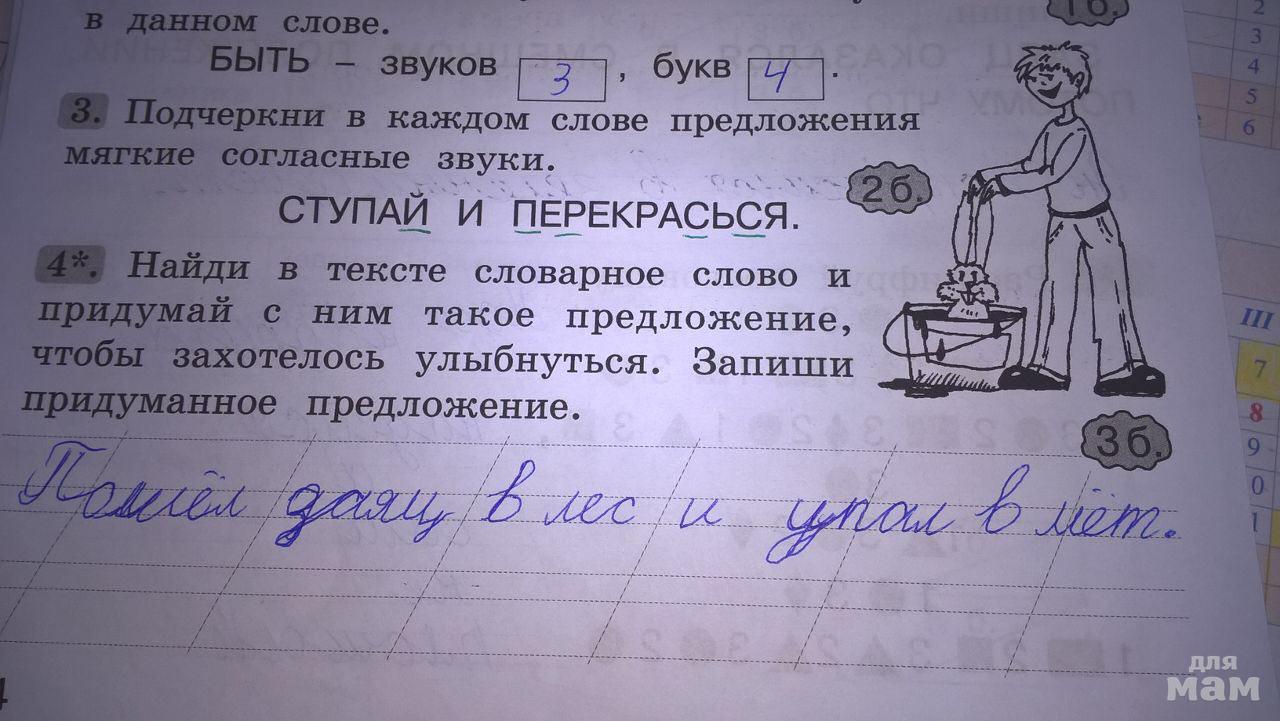 1б.
в данном слове.
БЫТЬ – звуков 3 , букв 4 .
3. Подчеркни в каждом слове предложения
мягкие согласные звуки.
2б.
СТУПАЙ И ПЕРЕКРАСЬСЯ.
4*. Найди в тексте словарное слово и
придумай с ним такое предложение,
чтобы захотелось улыбнуться. Запиши
придуманное предложение.
3б.
Пошёл даяц в лес и упал в мёт.
2
3
4
5
6
III
7
8
9
0
1
4
для
мам